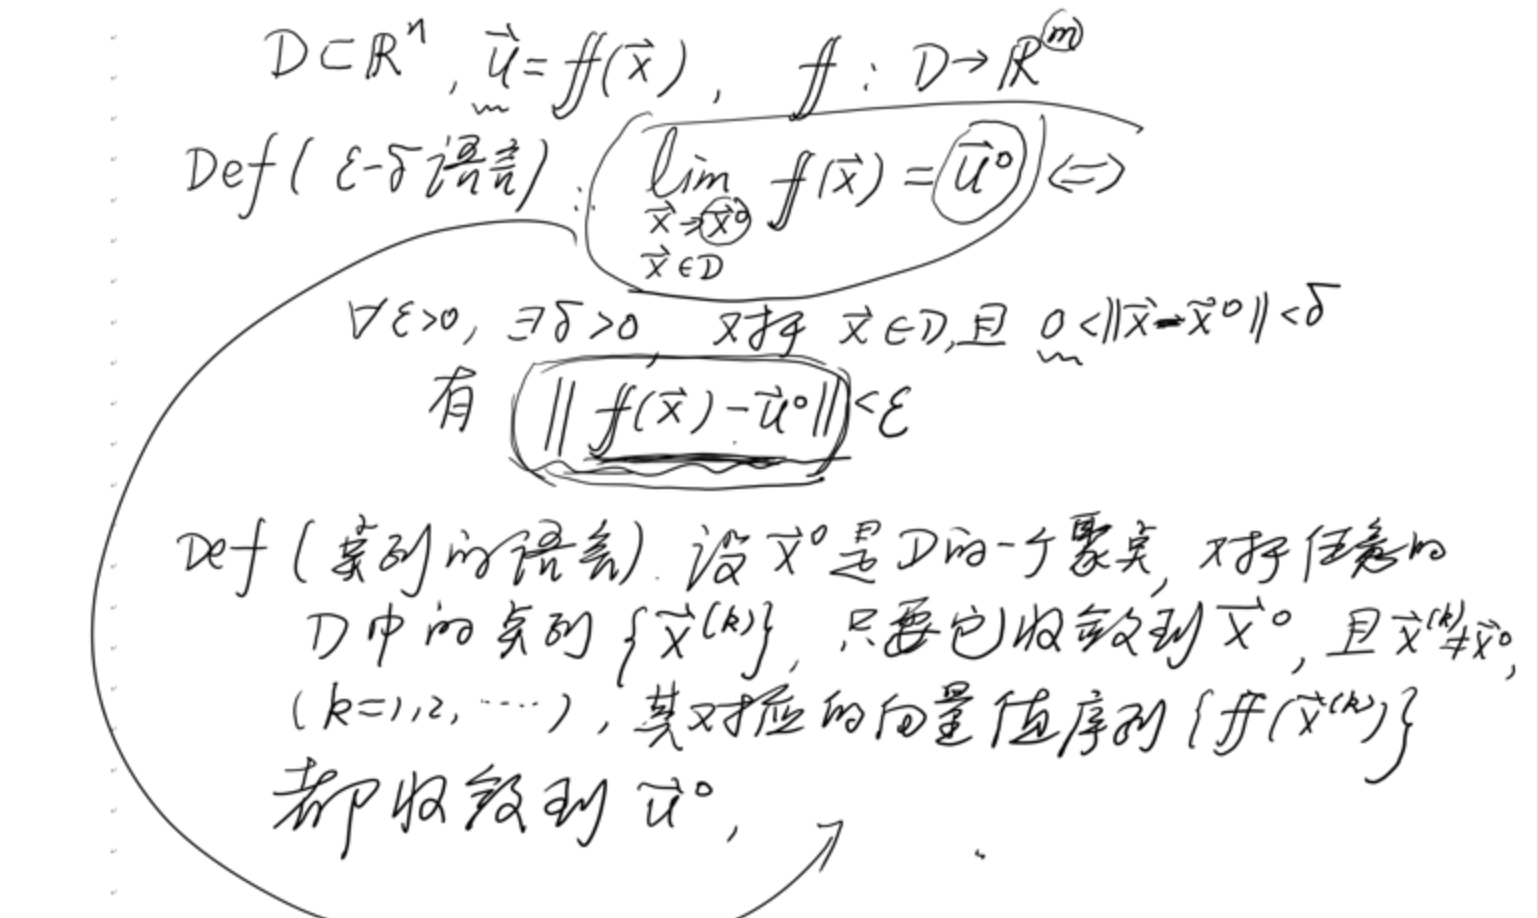 D⊂ℝⁿ, u⃗=f(x⃗), f: D→ℝᵐ
Def(ε-δ语言): lim f(x⃗)=u⃗⁰ ⇔
x⃗→x⃗⁰
x⃗∈D
∀ε>0, ∃δ>0, 对于 x⃗∈D,且 0<‖x⃗-x⃗⁰‖<δ
有 ‖f(x⃗)-u⃗⁰‖<ε
Def(点列的语言). 设x⃗⁰是D的一个聚点, 对于任意的
D中的点列{x⃗⁽ᵏ⁾}, 只要它收敛到x⃗⁰, 且x⃗⁽ᵏ⁾≠x⃗⁰,
(k=1,2,……), 其对应的向量值序列{f(x⃗⁽ᵏ⁾)}
都收敛到u⃗⁰,